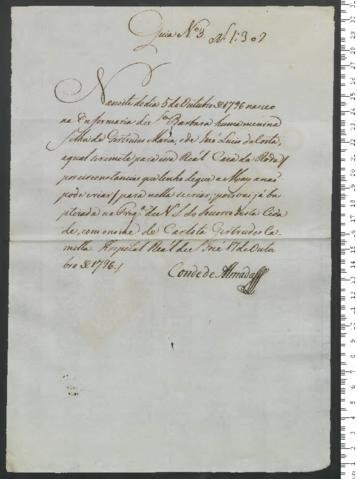 Guia Nº 3 Nº 1:302
Na noite do dia 5 de Outubro de 1796 nasceo
na Enfermaria de Sta Barbara huma menina
filha de Gertrudes Maria, e de José Luis da Costa,
a qual se remete para essa Real Casa da Roda /
por circonstancias que tenho de que a May a não
pode criar / para nella se criar, por ser já ba
ptizada na Freg.ª de N. S. do Socorro desta Cida
de, com o nome de Carlota Gertrudes Ca-
mella Hospital Real de S. José 17 de Outu
bro de 1796 /
Conde de Almada